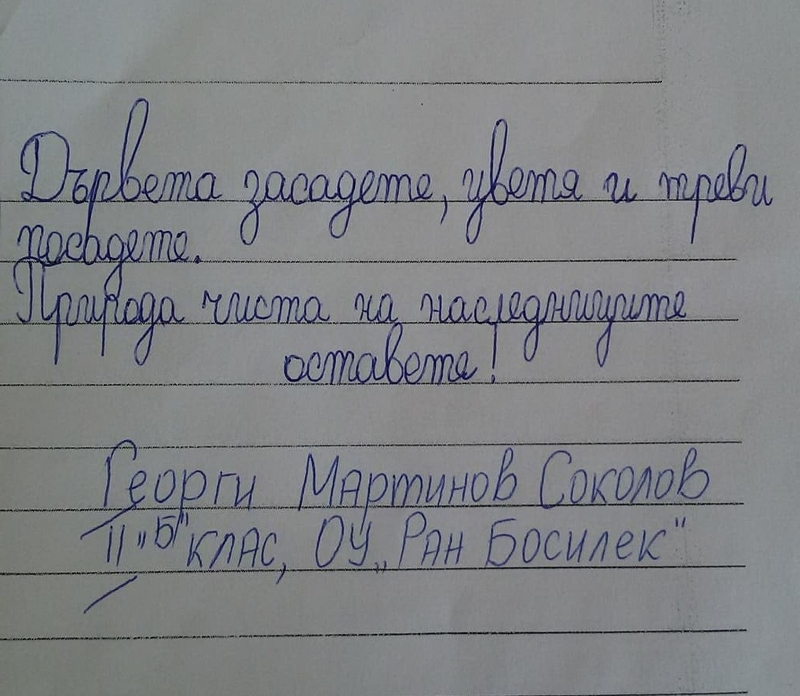 Дървета засадете, цветя и треви
посадете.
Природа чиста на наследниците
оставете!
Георги Мартинов Соколов
II "Б" клас, ОУ „Ран Босилек"